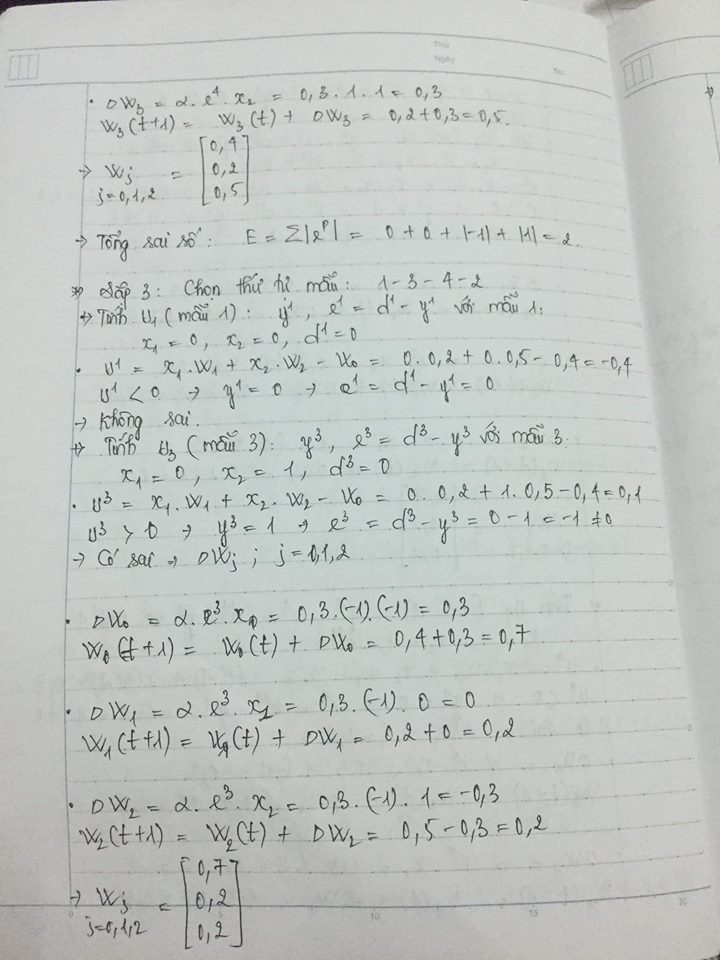 Thứ
Ngày
No.
• DW₃ = α. e⁴. x₂ = 0,3 . 1 . 1 = 0,3
W₃(t+1) = W₃(t) + DW₃ = 0,2+0,3=0,5.
→ Wj j=0,1,2 = [0,4
0,2
0,5]
→ Tổng sai số: E = Σ|eᵖ| = 0 + 0 + |-1| + |1| = 2.
Lặp 3: Chọn thứ tự mẫu: 1-3-4-2
→ Tính U₁ (mẫu 1): y¹, e¹ = d¹ - y¹ với mẫu 1:
x₁ = 0, x₂ = 0, d¹=0
• U¹ = x₁.W₁ + x₂.W₂ - W₀ = 0. 0,2 + 0. 0,5 - 0,4 = -0,4
U¹ < 0 → y¹ = 0 → e¹ = d¹ - y¹ = 0
→ Không sai.
→ Tính U₃ (mẫu 3): y³, e³ = d³ - y³ với mẫu 3.
x₁ = 0, x₂ = 1, d³ = 0
• U³ = x₁.W₁ + x₂.W₂ - W₀ = 0. 0,2 + 1. 0,5 - 0,4 = 0,1
U³ > 0 → y³ = 1 → e³ = d³ - y³ = 0 - 1 = -1 ≠ 0
→ Có sai → DWj ; j = 0,1,2
• DW₀ = α. e³. x₀ = 0,3.(-1).(-1) = 0,3
W₀(t+1) = W₀(t) + DW₀ = 0,4 + 0,3 = 0,7
• DW₁ = α. e³. x₁ = 0,3.(-1). 0 = 0
W₁(t+1) = W₁(t) + DW₁ = 0,2 + 0 = 0,2
• DW₂ = α. e³. x₂ = 0,3.(-1). 1 = -0,3
W₂(t+1) = W₂(t) + DW₂ = 0,5 - 0,3 = 0,2
→ Wj j=0,1,2 = [0,7
0,2
0,2]
0 5 10 15 20